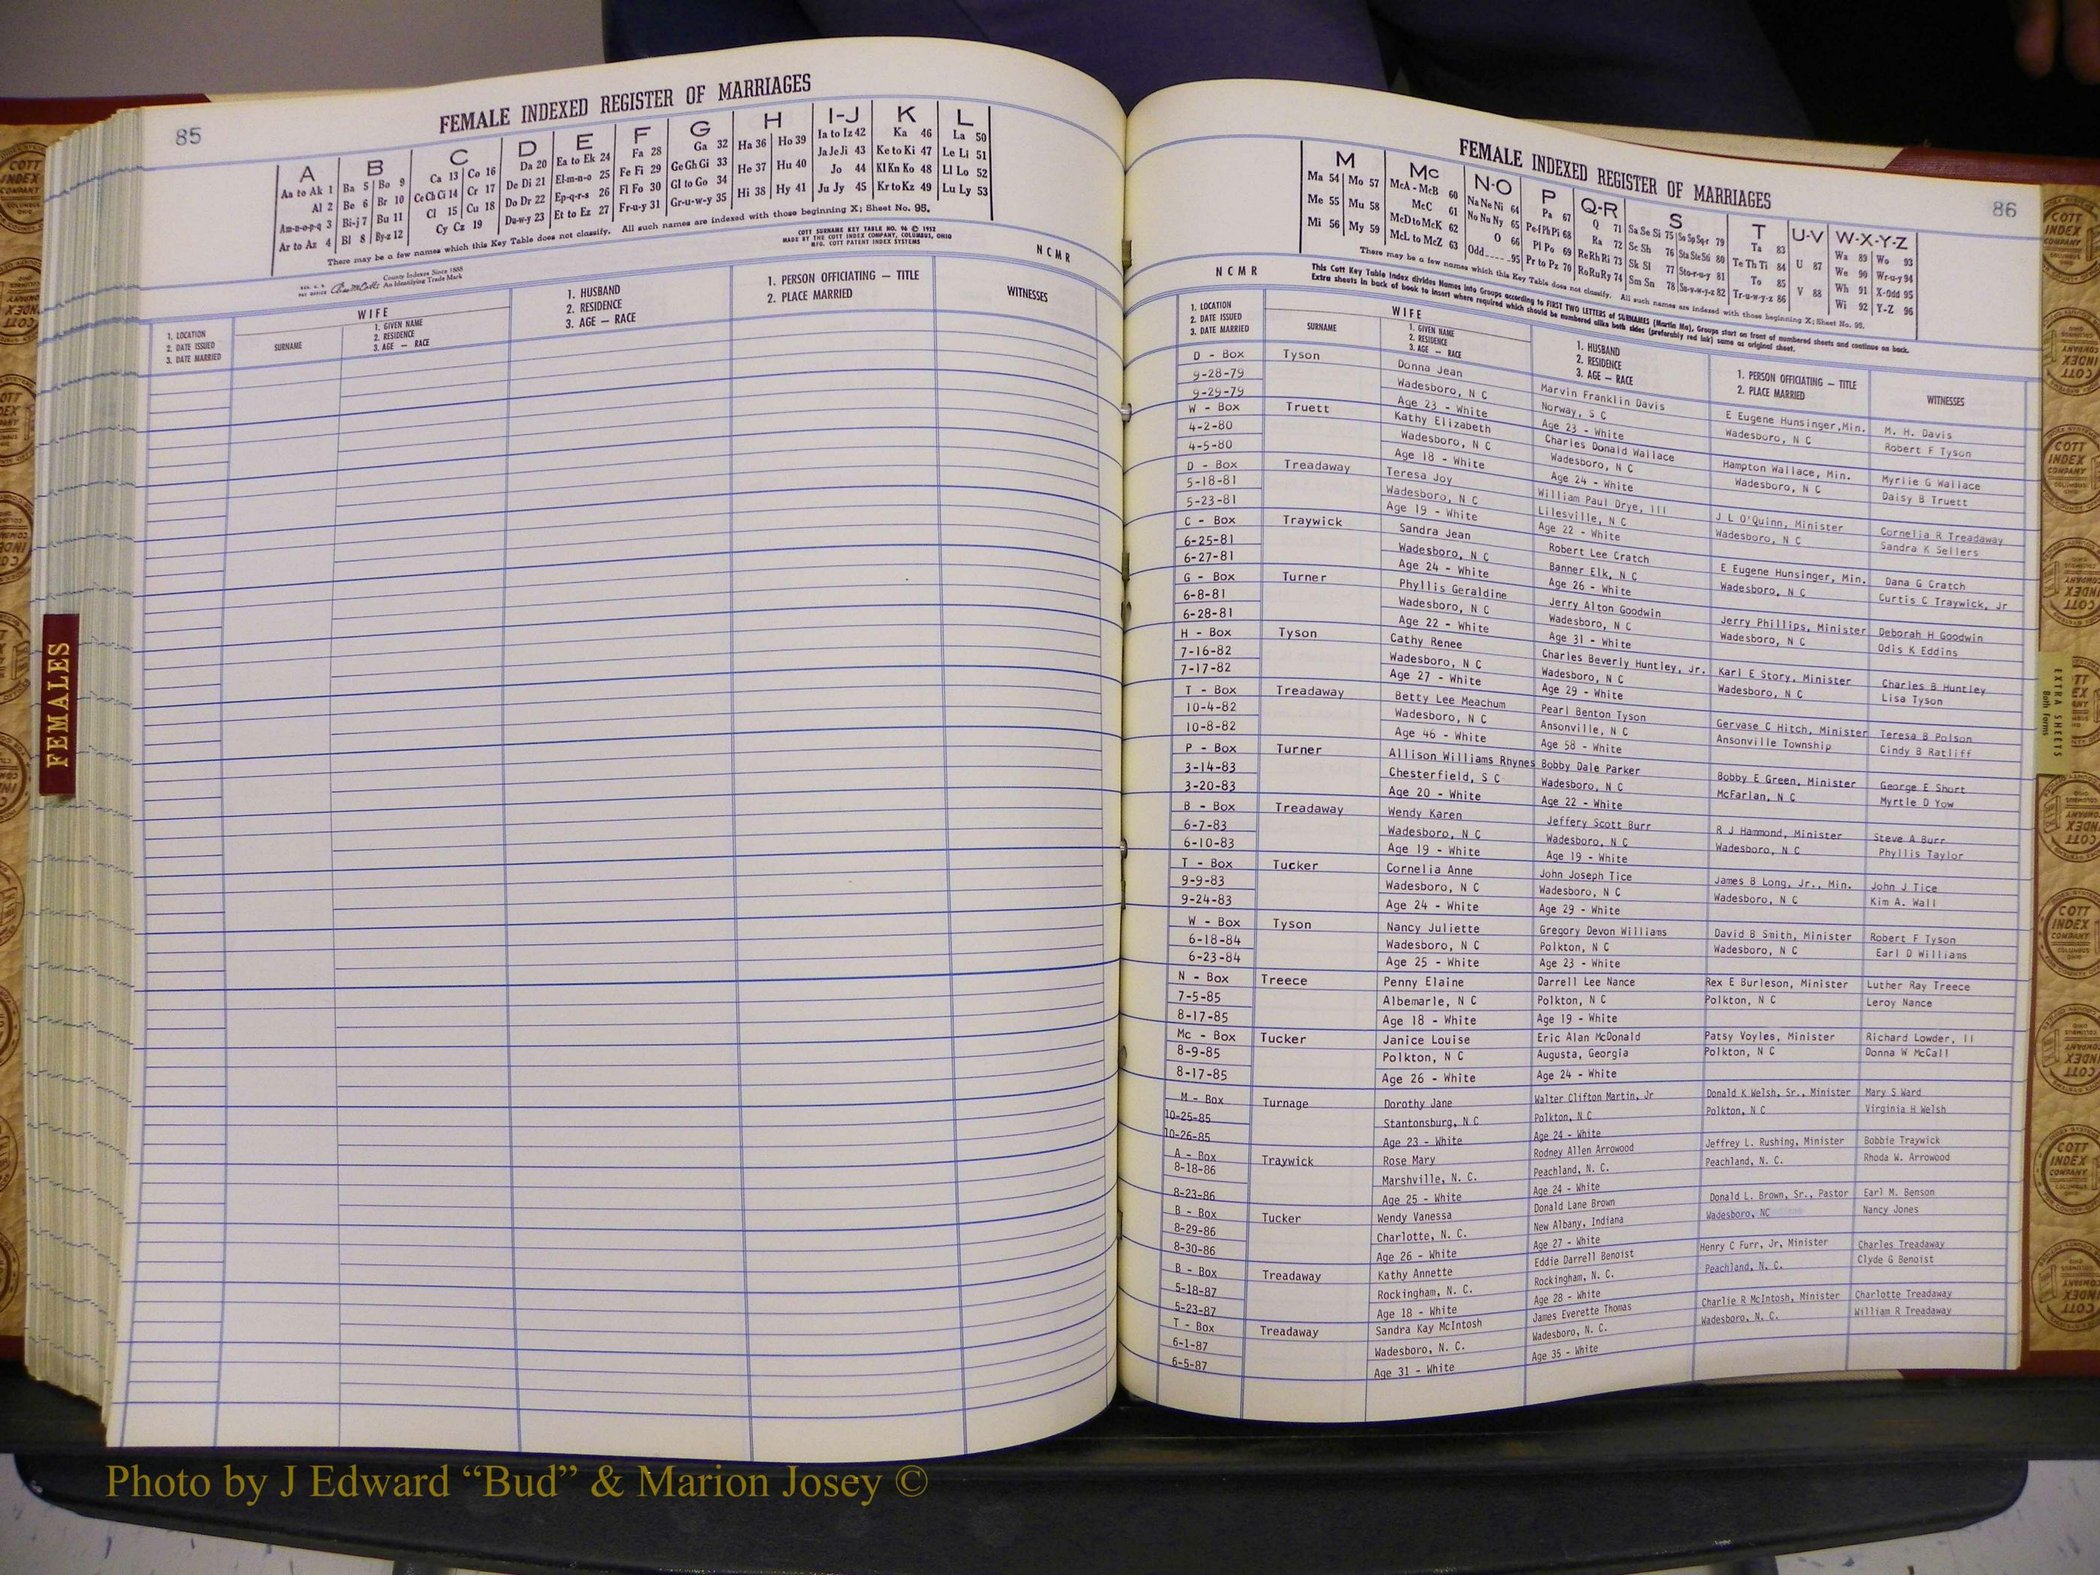 85
FEMALE INDEXED REGISTER OF MARRIAGES
A B C D E F G H I-J K L
Aa to Ak 1 Ba 5 Bo 9 Ca 13 Co 16 Da 20 Ea to Ek 24 Fa 28 Ga 32 Ha 36 Ho 39 Ia to Iz 42 Ka 46 La 50
Al 2 Be 6 Br 10 Ce Ch Ci 14 Cr 17 De Di 21 El-m-n-o 25 Fe Fi 29 Ge Gh Gi 33 He 37 Hu 40 Ja Je Ji 43 Ke to Ki 47 Le Li 51
Am-n-o-p-q 3 Bi-j 7 Bu 11 Cl 15 Cu 18 Do Dr 22 Ep-q-r-s 26 Fl Fo 30 Gl to Go 34 Hi 38 Hy 41 Jo 44 Kl Kn Ko 48 Ll Lo 52
Ar to Az 4 Bl 8 By-z 12 Cy Cz 19 Du-w-y 23 Et to Ez 27 Fr-u-y 31 Gr-u-w-y 35 Ju Jy 45 Kr to Kz 49 Lu Ly 53
There may be a few names which this Key Table does not classify. All such names are indexed with those beginning X; Sheet No. 95.
COTT SURNAME KEY TABLE NO. 96 © 1952
MADE BY THE COTT INDEX COMPANY, COLUMBUS, OHIO
MFG. COTT PATENT INDEX SYSTEMS
County Indexes Since 1888
An Identifying Trade Mark
NCMR
1. LOCATION
2. DATE ISSUED
3. DATE MARRIED
WIFE
SURNAME
1. GIVEN NAME
2. RESIDENCE
3. AGE — RACE
1. HUSBAND
2. RESIDENCE
3. AGE — RACE
1. PERSON OFFICIATING — TITLE
2. PLACE MARRIED
WITNESSES
FEMALES
FEMALE INDEXED REGISTER OF MARRIAGES
86
M Mc N-O P Q-R S T U-V W-X-Y-Z
Ma 54 Mo 57 McA - McB 60 Na Ne Ni 64 Pa 67 Q 71 Sa Se Si 75 So Sp Sq-r 79 Ta 83 U 87 Wa 89 Wo 93
Me 55 Mu 58 McC 61 No Nu Ny 65 Pe-f Ph Pi 68 Ra 72 Sc Sh 76 Sta Ste Sti 80 Te Th Ti 84 V 88 We 90 Wr-u-y 94
Mi 56 My 59 McD to McK 62 O 66 Pl Po 69 Re Rh Ri 73 Sk Sl 77 Sto-r-u-y 81 To 85 Wh 91 X-Odd 95
McL to McZ 63 Odd 95 Pr to Pz 70 Ro Ru Ry 74 Sm Sn 78 Su-v-w-y-z 82 Tr-u-w-y-z 86 Wi 92 Y-Z 96
There may be a few names which this Key Table does not classify. All such names are indexed with those beginning X; Sheet No. 95.
This Cott Key Table Index divides Names into Groups according to FIRST TWO LETTERS of SURNAMES (Martin Ma), Groups start on front of numbered sheets and continue on back.
Extra sheets in back of book to insert where required which should be numbered alike both sides (preferably red ink) same as original sheet.
NCMR
1. LOCATION
2. DATE ISSUED
3. DATE MARRIED
WIFE
SURNAME
1. GIVEN NAME
2. RESIDENCE
3. AGE — RACE
1. HUSBAND
2. RESIDENCE
3. AGE — RACE
1. PERSON OFFICIATING — TITLE
2. PLACE MARRIED
WITNESSES
D - Box Tyson Donna Jean Marvin Franklin Davis E Eugene Hunsinger,Min. M. H. Davis
9-28-79 Wadesboro, N C Norway, S C Wadesboro, N C Robert F Tyson
9-29-79 Age 23 - White Age 23 - White
W - Box Truett Kathy Elizabeth Charles Donald Wallace Hampton Wallace, Min. Myrlie G Wallace
4-2-80 Wadesboro, N C Wadesboro, N C Wadesboro, N C Daisy B Truett
4-5-80 Age 18 - White Age 24 - White
D - Box Treadaway Teresa Joy William Paul Drye, III J L O'Quinn, Minister Cornelia R Treadaway
5-18-81 Wadesboro, N C Lilesville, N C Wadesboro, N C Sandra K Sellers
5-23-81 Age 19 - White Age 22 - White
C - Box Traywick Sandra Jean Robert Lee Cratch E Eugene Hunsinger, Min. Dana G Cratch
6-25-81 Wadesboro, N C Banner Elk, N C Wadesboro, N C Curtis C Traywick, Jr
6-27-81 Age 24 - White Age 26 - White
G - Box Turner Phyllis Geraldine Jerry Alton Goodwin Jerry Phillips, Minister Deborah H Goodwin
6-8-81 Wadesboro, N C Wadesboro, N C Wadesboro, N C Odis K Eddins
6-28-81 Age 22 - White Age 31 - White
H - Box Tyson Cathy Renee Charles Beverly Huntley, Jr. Karl E Story, Minister Charles B Huntley
7-16-82 Wadesboro, N C Wadesboro, N C Wadesboro, N C Lisa Tyson
7-17-82 Age 27 - White Age 29 - White
T - Box Treadaway Betty Lee Meachum Pearl Benton Tyson Gervase C Hitch, Minister Teresa B Polson
10-4-82 Wadesboro, N C Ansonville, N C Ansonville Township Cindy B Ratliff
10-8-82 Age 46 - White Age 58 - White
P - Box Turner Allison Williams Rhynes Bobby Dale Parker Bobby E Green, Minister George E Short
3-14-83 Chesterfield, S C Wadesboro, N C McFarlan, N C Myrtle D Yow
3-20-83 Age 20 - White Age 22 - White
B - Box Treadaway Wendy Karen Jeffery Scott Burr R J Hammond, Minister Steve A Burr
6-7-83 Wadesboro, N C Wadesboro, N C Wadesboro, N C Phyllis Taylor
6-10-83 Age 19 - White Age 19 - White
T - Box Tucker Cornelia Anne John Joseph Tice James B Long, Jr., Min. John J Tice
9-9-83 Wadesboro, N C Wadesboro, N C Wadesboro, N C Kim A. Wall
9-24-83 Age 24 - White Age 29 - White
W - Box Tyson Nancy Juliette Gregory Devon Williams David B Smith, Minister Robert F Tyson
6-18-84 Wadesboro, N C Polkton, N C Wadesboro, N C Earl D Williams
6-23-84 Age 25 - White Age 23 - White
N - Box Treece Penny Elaine Darrell Lee Nance Rex E Burleson, Minister Luther Ray Treece
7-5-85 Albemarle, N C Polkton, N C Polkton, N C Leroy Nance
8-17-85 Age 18 - White Age 19 - White
Mc - Box Tucker Janice Louise Eric Alan McDonald Patsy Voyles, Minister Richard Lowder, II
8-9-85 Polkton, N C Augusta, Georgia Polkton, N C Donna W McCall
8-17-85 Age 26 - White Age 24 - White
M - Box Turnage Dorothy Jane Walter Clifton Martin, Jr Donald K Welsh, Sr., Minister Mary S Ward
10-25-85 Stantonsburg, N C Polkton, N C Polkton, N C Virginia H Welsh
10-26-85 Age 23 - White Age 24 - White
A - Box Traywick Rose Mary Rodney Allen Arrowood Jeffrey L. Rushing, Minister Bobbie Traywick
8-18-86 Marshville, N. C. Peachland, N. C. Peachland, N. C. Rhoda W. Arrowood
8-23-86 Age 25 - White Age 24 - White
B - Box Tucker Wendy Vanessa Donald Lane Brown Donald L. Brown, Sr., Pastor Earl M. Benson
8-29-86 Charlotte, N. C. New Albany, Indiana Wadesboro, NC Nancy Jones
8-30-86 Age 26 - White Age 27 - White
B - Box Treadaway Kathy Annette Eddie Darrell Benoist Henry C Furr, Jr, Minister Charles Treadaway
5-18-87 Rockingham, N. C. Rockingham, N. C. Peachland, N. C. Clyde G Benoist
5-23-87 Age 18 - White Age 28 - White
T - Box Treadaway Sandra Kay McIntosh James Everette Thomas Charlie R McIntosh, Minister Charlotte Treadaway
6-1-87 Wadesboro, N. C. Wadesboro, N. C. Wadesboro, N. C. William R Treadaway
6-5-87 Age 31 - White Age 35 - White
EXTRA SHEETS
Both Forms
COTT INDEX COMPANY COLUMBUS OHIO
Photo by J Edward “Bud” & Marion Josey ©